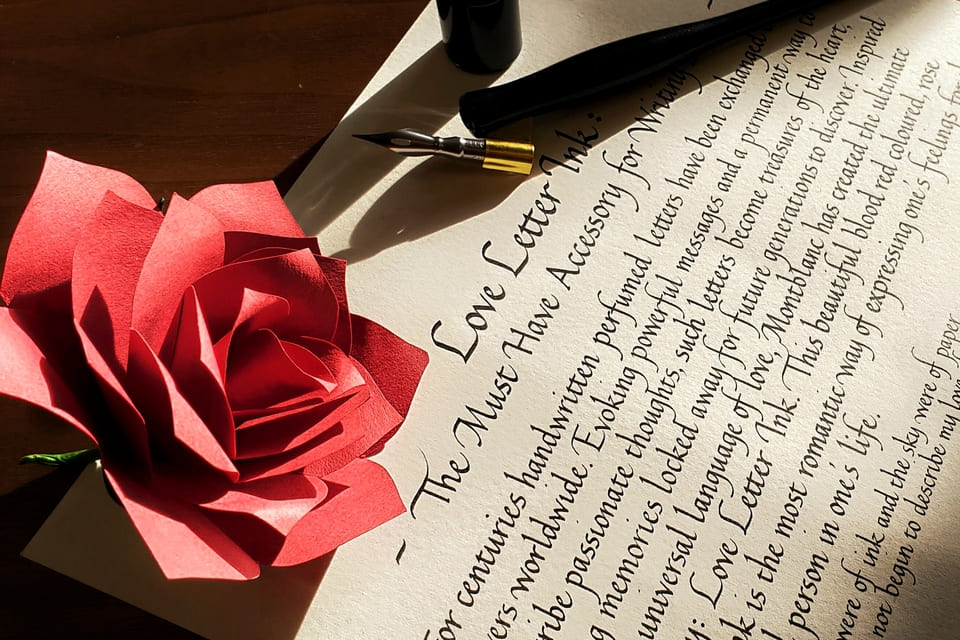 Love Letter Ink:
- The Must Have Accessory for Writing
For centuries handwritten perfumed letters have been exchanged
worldwide. Evoking powerful messages and a permanent way to
passionate thoughts, such letters become treasures of the heart,
memories locked away for future generations to discover. Inspired
universal language of love, Montblanc has created the ultimate
Love Letter Ink. This beautiful blood red coloured rose
is the most romantic way of expressing one's feelings
person in one's life.
were of ink and the sky were of paper
not begin to describe my